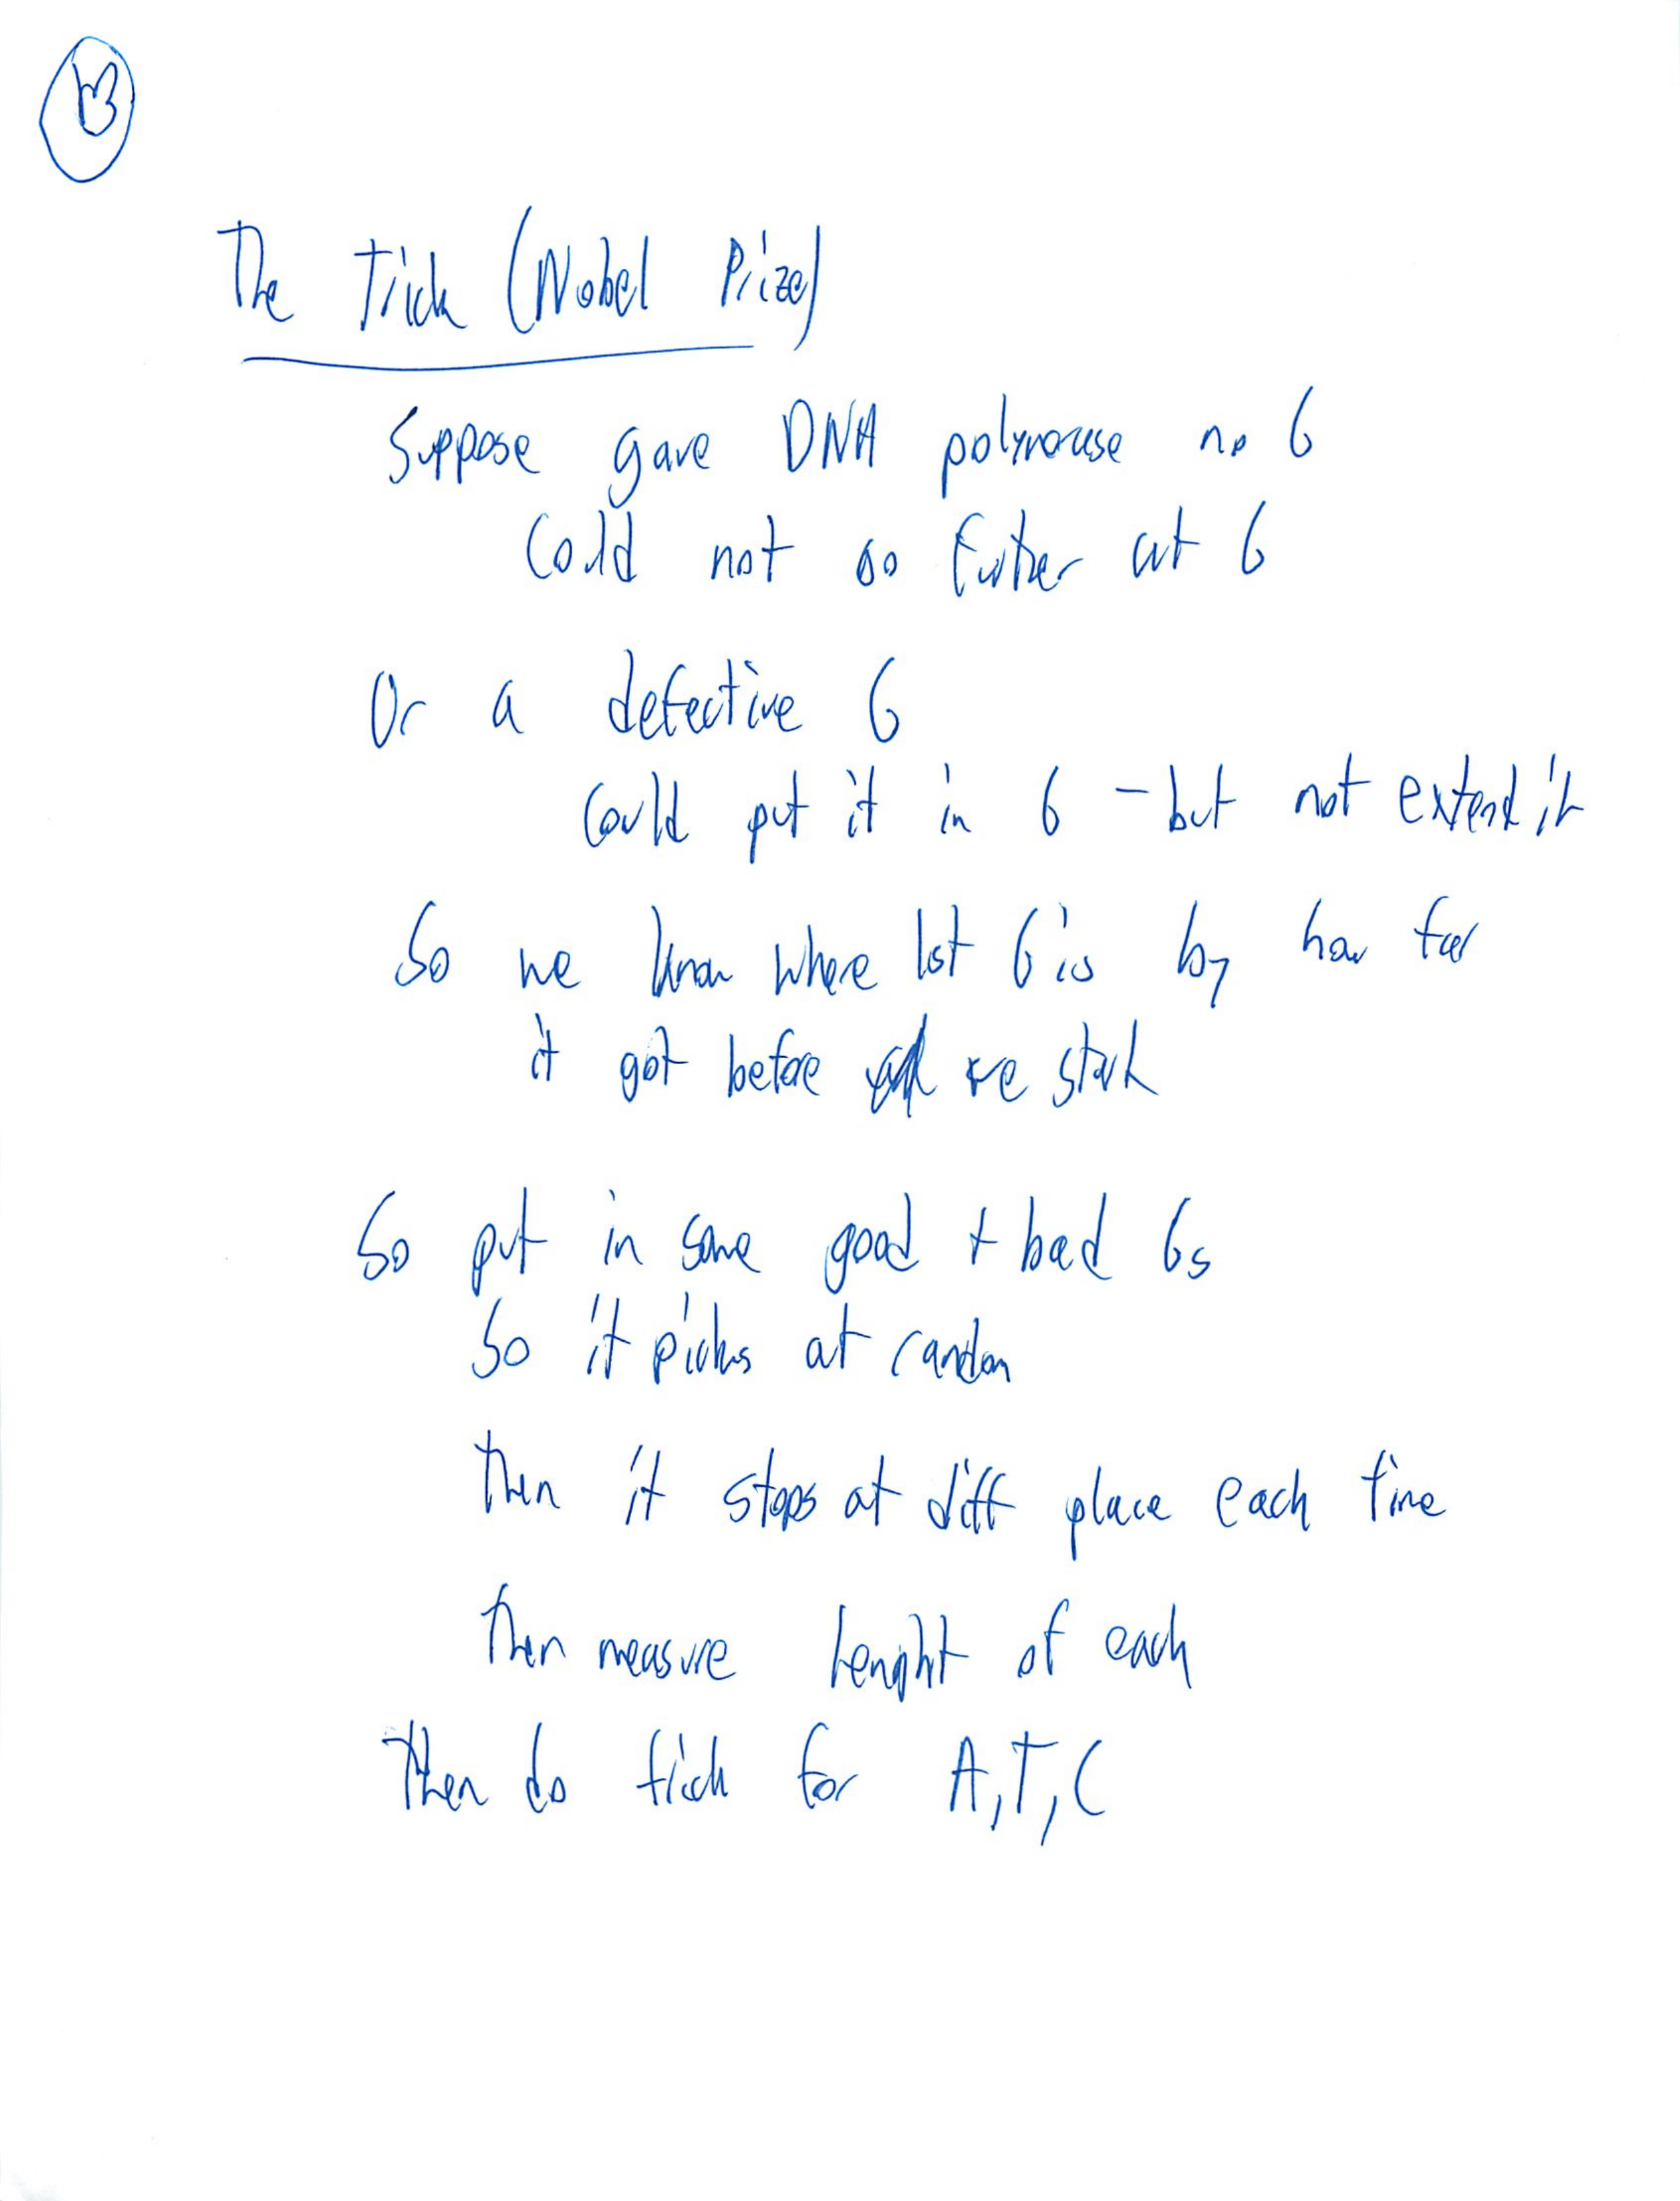 The Trick (Nobel Prize)
Suppose gave DNA polymerase no G
Could not go further at G
Or a defective G
Could put it in G - but not extend it
So we know where 1st G is by how far
it got before we start
So put in some good + bad Gs
So it picks at random
Then it stops at diff place each time
Then measure lenght of each
Then do trick for A, T, C